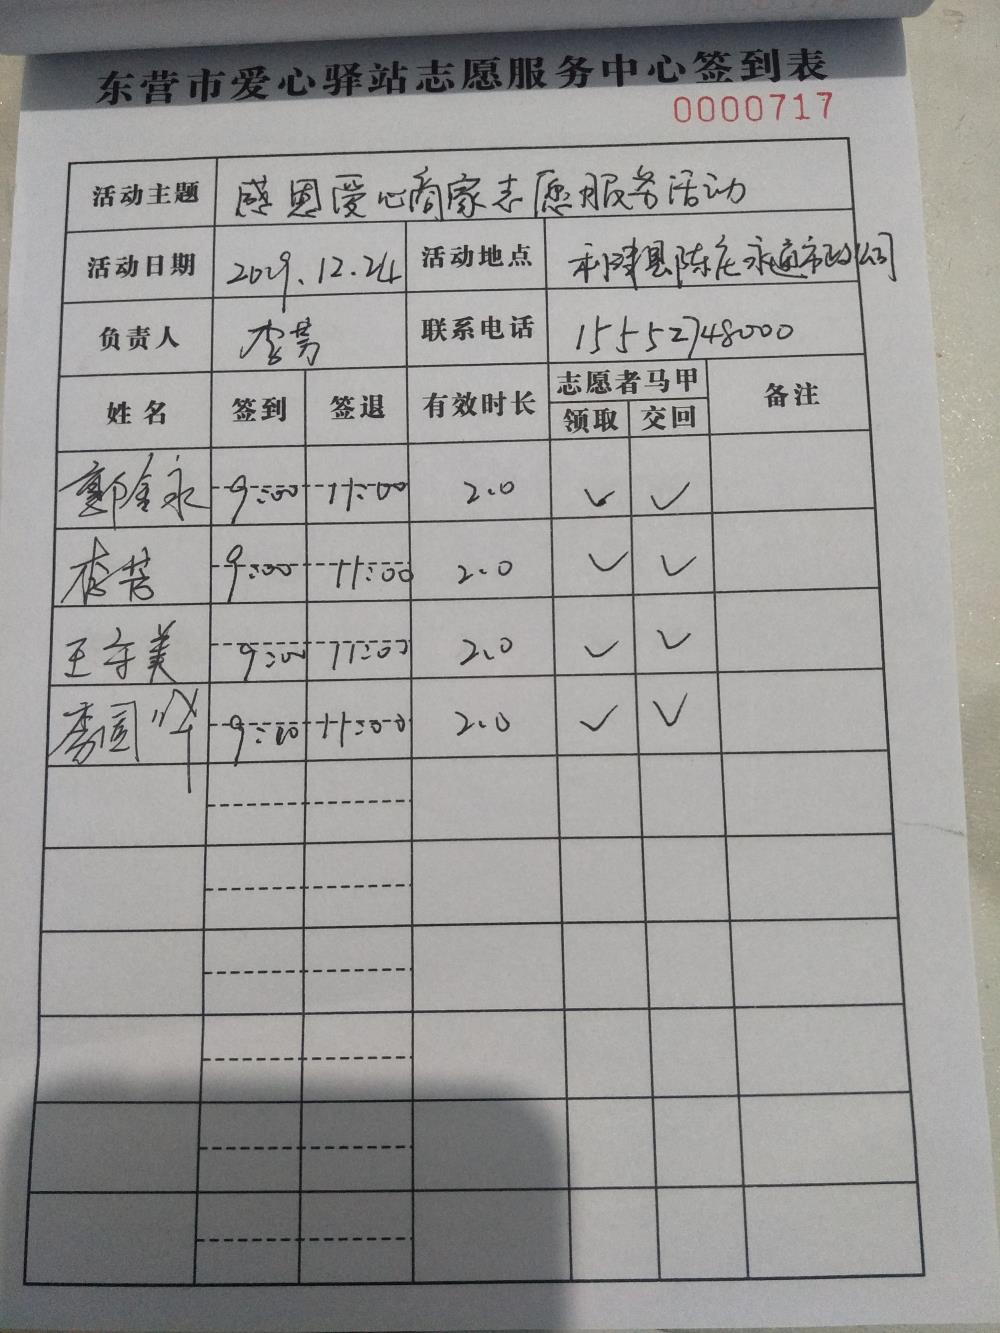 东营市爱心驿站志愿服务中心签到表
0000717
活动主题 感恩爱心商家志愿服务活动
活动日期 2019.12.24 活动地点 利津县陈庄永通市政公司
负责人 李芳 联系电话 15552748000
姓名 签到 签退 有效时长 志愿者马甲 备注
领取 交回
9:00 11:00 2.0 ✓ ✓
李芳 9:00 11:00 2.0 ✓ ✓
王守美 9:00 11:00 2.0 ✓ ✓
9:00 11:00 2.0 ✓ ✓